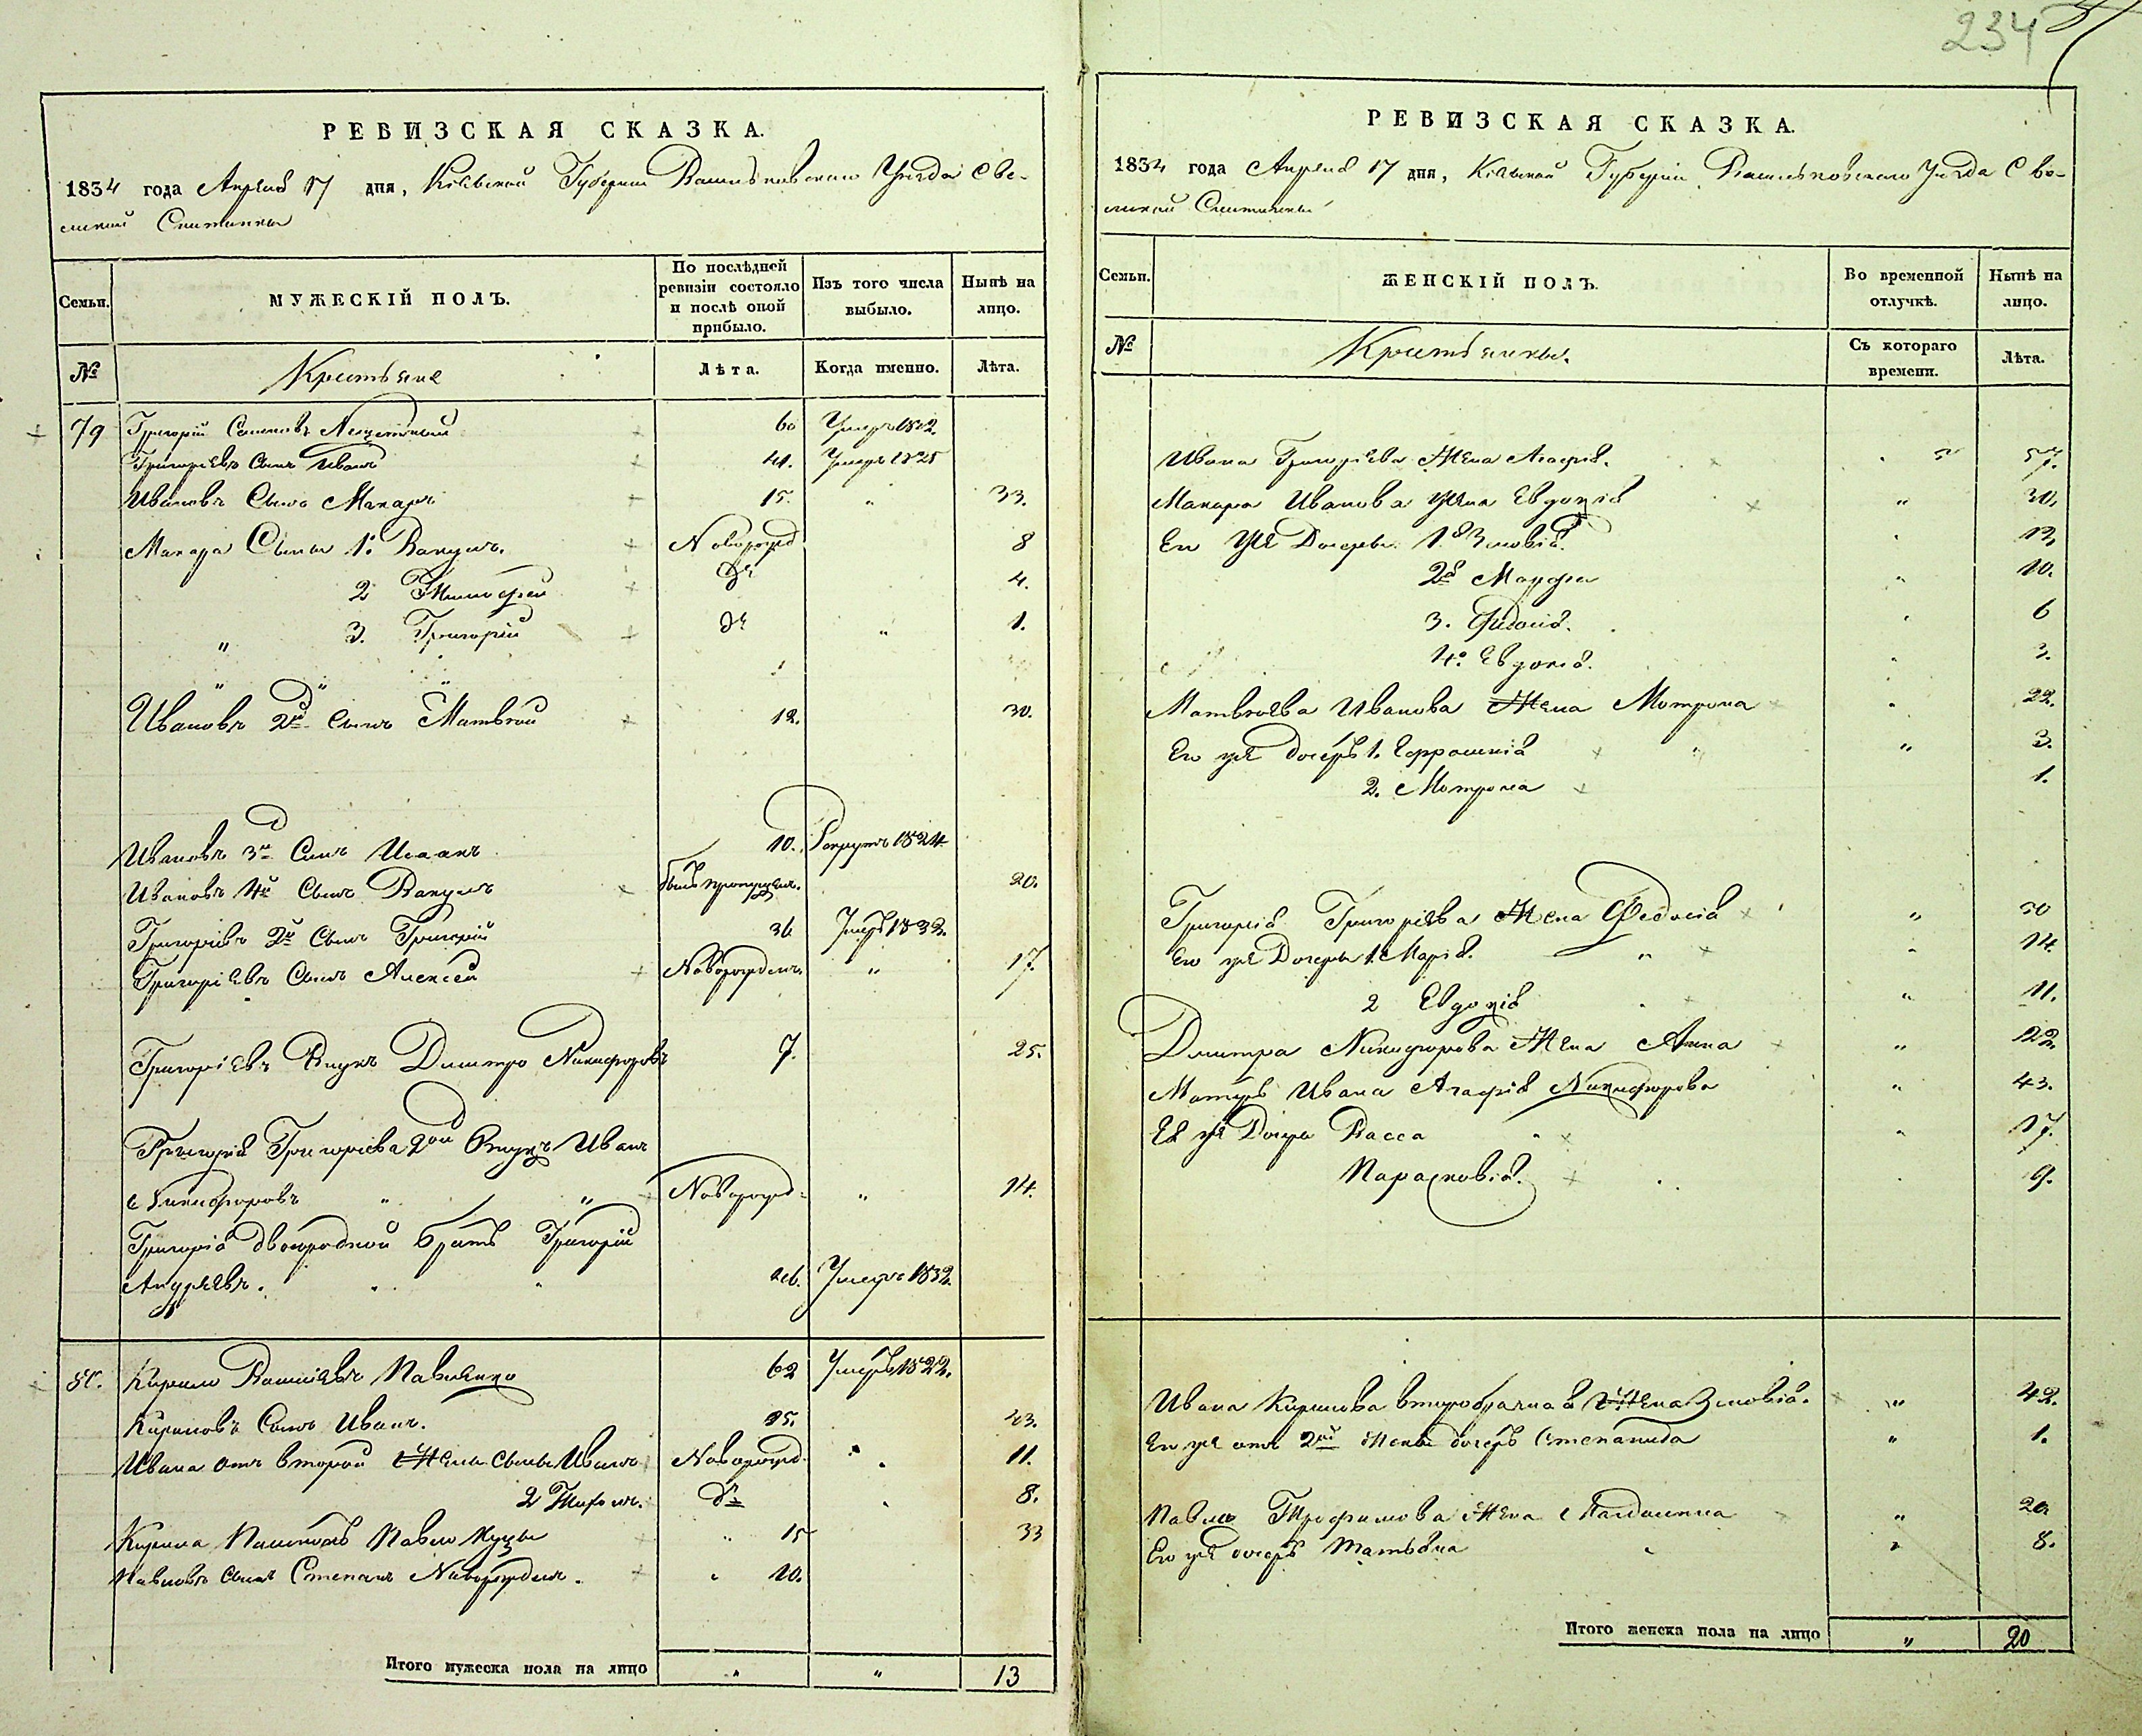 234
РЕВИЗСКАЯ СКАЗКА.
1834 года Апреля 17 дня, Кіевской Губерніи Васильковского Уезда С ве-
ликой Снитинки
Семьи.
МУЖЕСКІЙ ПОЛЪ.
По послѣдней ревизіи состояло и послѣ оной прибыло.
Изъ того числа выбыло.
Нынѣ на лицо.
№
Крестьяне
Лѣта.
Когда именно.
Лѣта.
79 Григорій Семеновъ 60 Умеръ
Григоріевъ Сынъ Иванъ 41. Умеръ 1825
Ивановъ Сынъ Макаръ 15. " 33.
Макара Сыны 1. Вакулъ. Новорожд 8
2 Тимофей дº 4.
" 3. Григорій дº " 1.
Ивановъ 2й Сынъ Матвей 12. 30.
Ивановъ 3й Сынъ Исаакъ 10. Рекрутъ 1824
Ивановъ 4й Сынъ Вакулъ былъ пропущен. 20.
Григоріевъ 2й Сынъ Григорій 36 Умеръ 1832.
Григоріевъ Сынъ Алексей Новорожден. " 17.
Григоріевъ Внукъ Дмитро Никифоровъ 7. 25.
Григорія Григоріева 2ой Внукъ Иванъ
Никифоровъ " " Новорожд " 14.
Григорія двоюродной братъ Григорій
Андреевъ. Умеръ 1832.
80. Кирило Васильевъ Павленко 62 Умеръ 1822.
Кириловъ Сынъ Иванъ. 25. 43.
Ивана отъ второй Жены сыны Иванъ Новорожд. 11.
2 Тихон. дº 8.
Кирила Павло 15 33
Павловъ сынъ Степанъ Новорожден. 10.
Итого мужеска пола на лицо " " 13
РЕВИЗСКАЯ СКАЗКА.
1834 года Апреля 17 дня, Кіевской Губерніи Васильковского Уезда С ве-
ликой Снитинки
Семьи.
ЖЕНСКІЙ ПОЛЪ.
Во временной отлучкѣ.
Нынѣ на лицо.
№
Крестьянки.
Съ котораго времени.
Лѣта.
Ивана Григоріева Жена Агафія. 57.
Макара Иванова Жена Евдокія " 30.
Его же Дочеры 1. Зиновія. 13.
2я Марфа " 10.
3. Федосія. 6
4. Евдокія. 3.
Матвеева Иванова Жена Мотрона 22.
Его же дочерь 1. Ефросинія " 3.
2. Мотрона 1.
Григорія Григоріева Жена Федосія " 50
Его же Дочеры 1. Марія. " 14
2 Евдокія " 11.
Дмитра Никифорова Жена Анна " 22.
Матерь Ивана Агафія Никифорова " 43.
Ея же Дочерь Васса 17.
Парасковія. 9.
Ивана Кирилова второбрачная Жена Зиновія. " 42.
Его же отъ 2ой жены дочерь Степанида " 1.
Павла Трофимова Жена Магдалина "
Его же дочерь Татьяна " 8.
Итого женска пола на лицо " 20